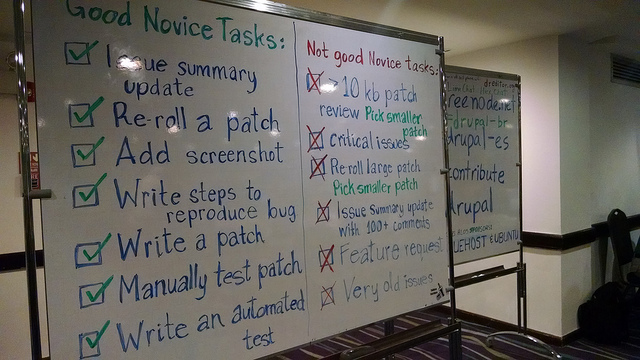 Good Novice Tasks:
Issue summary
update
Re-roll a patch
Add screenshot
Write steps to
reproduce bug
Write a patch
Manually test patch
Write an automated
test
Not good Novice tasks:
>10 kb patch
review Pick smaller
patch
critical issues
Re-roll large patch
Pick smaller patch
Issue summary update
with 100+ comments
Feature request
Very old issues
reenode.net
#drupal-br
drupal-es
contribute
drupal
UEHOST & UBUNTU